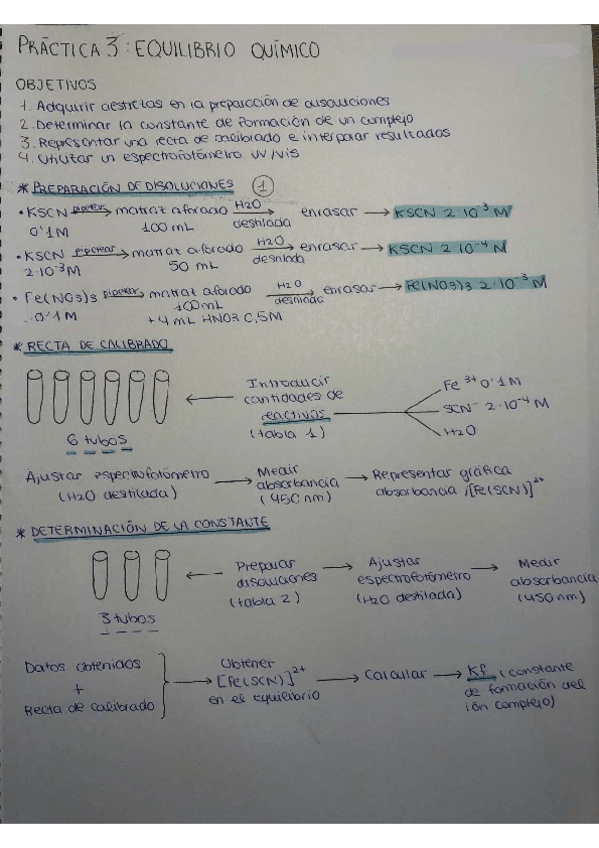 PRÁCTICA 3: EQUILIBRIO QUÍMICO
OBJETIVOS
1. Adquirir destrezas en la preparación de disoluciones
2. Determinar la constante de formación de un complejo
3. Representar una recta de calibrado e interpolar resultados
4. Utilizar un espectrofotómetro UV/vis
* PREPARACIÓN DE DISOLUCIONES 1
• KSCN pipetear → matraz aforado H2O destilada → enrasar → KSCN 2·10⁻³ M
0'1M 100 mL
• KSCN pipetear → matraz aforado H2O destilada → enrasar → KSCN 2·10⁻⁴ M
2·10⁻³M 50 mL
• Fe(NO3)3 pipetear → matraz aforado H2O destilada → enrasar → Fe(NO3)3 2·10⁻³ M
0'1M 100mL
+4 mL HNO3 0,5M
* RECTA DE CALIBRADO
6 tubos ← Introducir cantidades de reactivos (tabla 1)
Fe³⁺ 0'1M
SCN⁻ 2·10⁻⁴ M
H2O
Ajustar espectrofotómetro (H2O destilada) → Medir absorbancia (450 nm) → Representar gráfica absorbancia, [Fe(SCN)]²⁺
* DETERMINACIÓN DE LA CONSTANTE
3 tubos ← Preparar disoluciones (tabla 2) → Ajustar espectrofotómetro (H2O destilada) → Medir absorbancia (450 nm)
Datos obtenidos + Recta de calibrado → Obtener [Fe(SCN)]²⁺ en el equilibrio → Calcular → Kf (constante de formación del ión complejo)